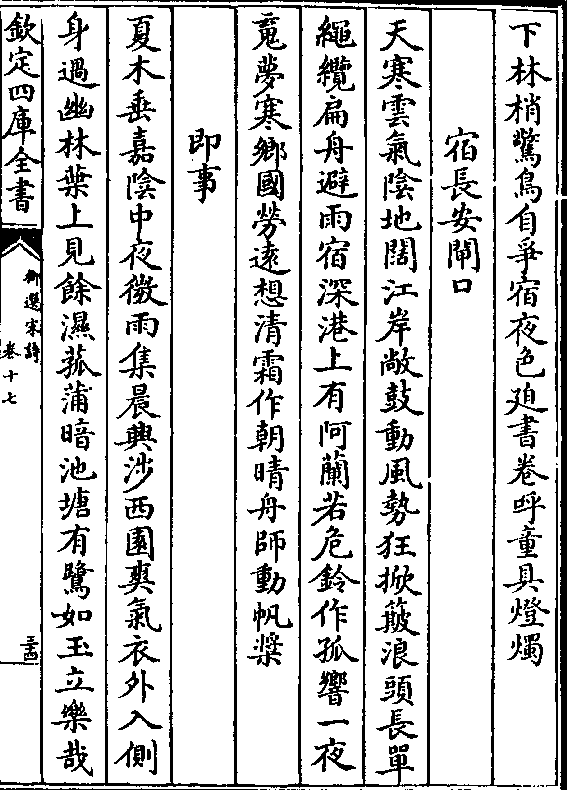 下林梢驚鳥自爭宿夜色廹書卷呼童具燈燭
宿長安閘口
天寒雲氣隂地闊江岸敞鼓動風勢狂掀簸浪頭長單
繩纜扁舟避雨宿深港上有阿蘭若危鈴作孤響一夜
䰟夢寒鄉國勞逺想清霜作朝晴舟師動帆槳
即事
夏木垂嘉隂中夜微雨集晨興涉西園爽氣衣外入側
身過幽林葉上見餘濕菰蒲暗池塘有鷺如玉立樂哉
欽定四庫全書
御選宋詩
卷十七
三十四